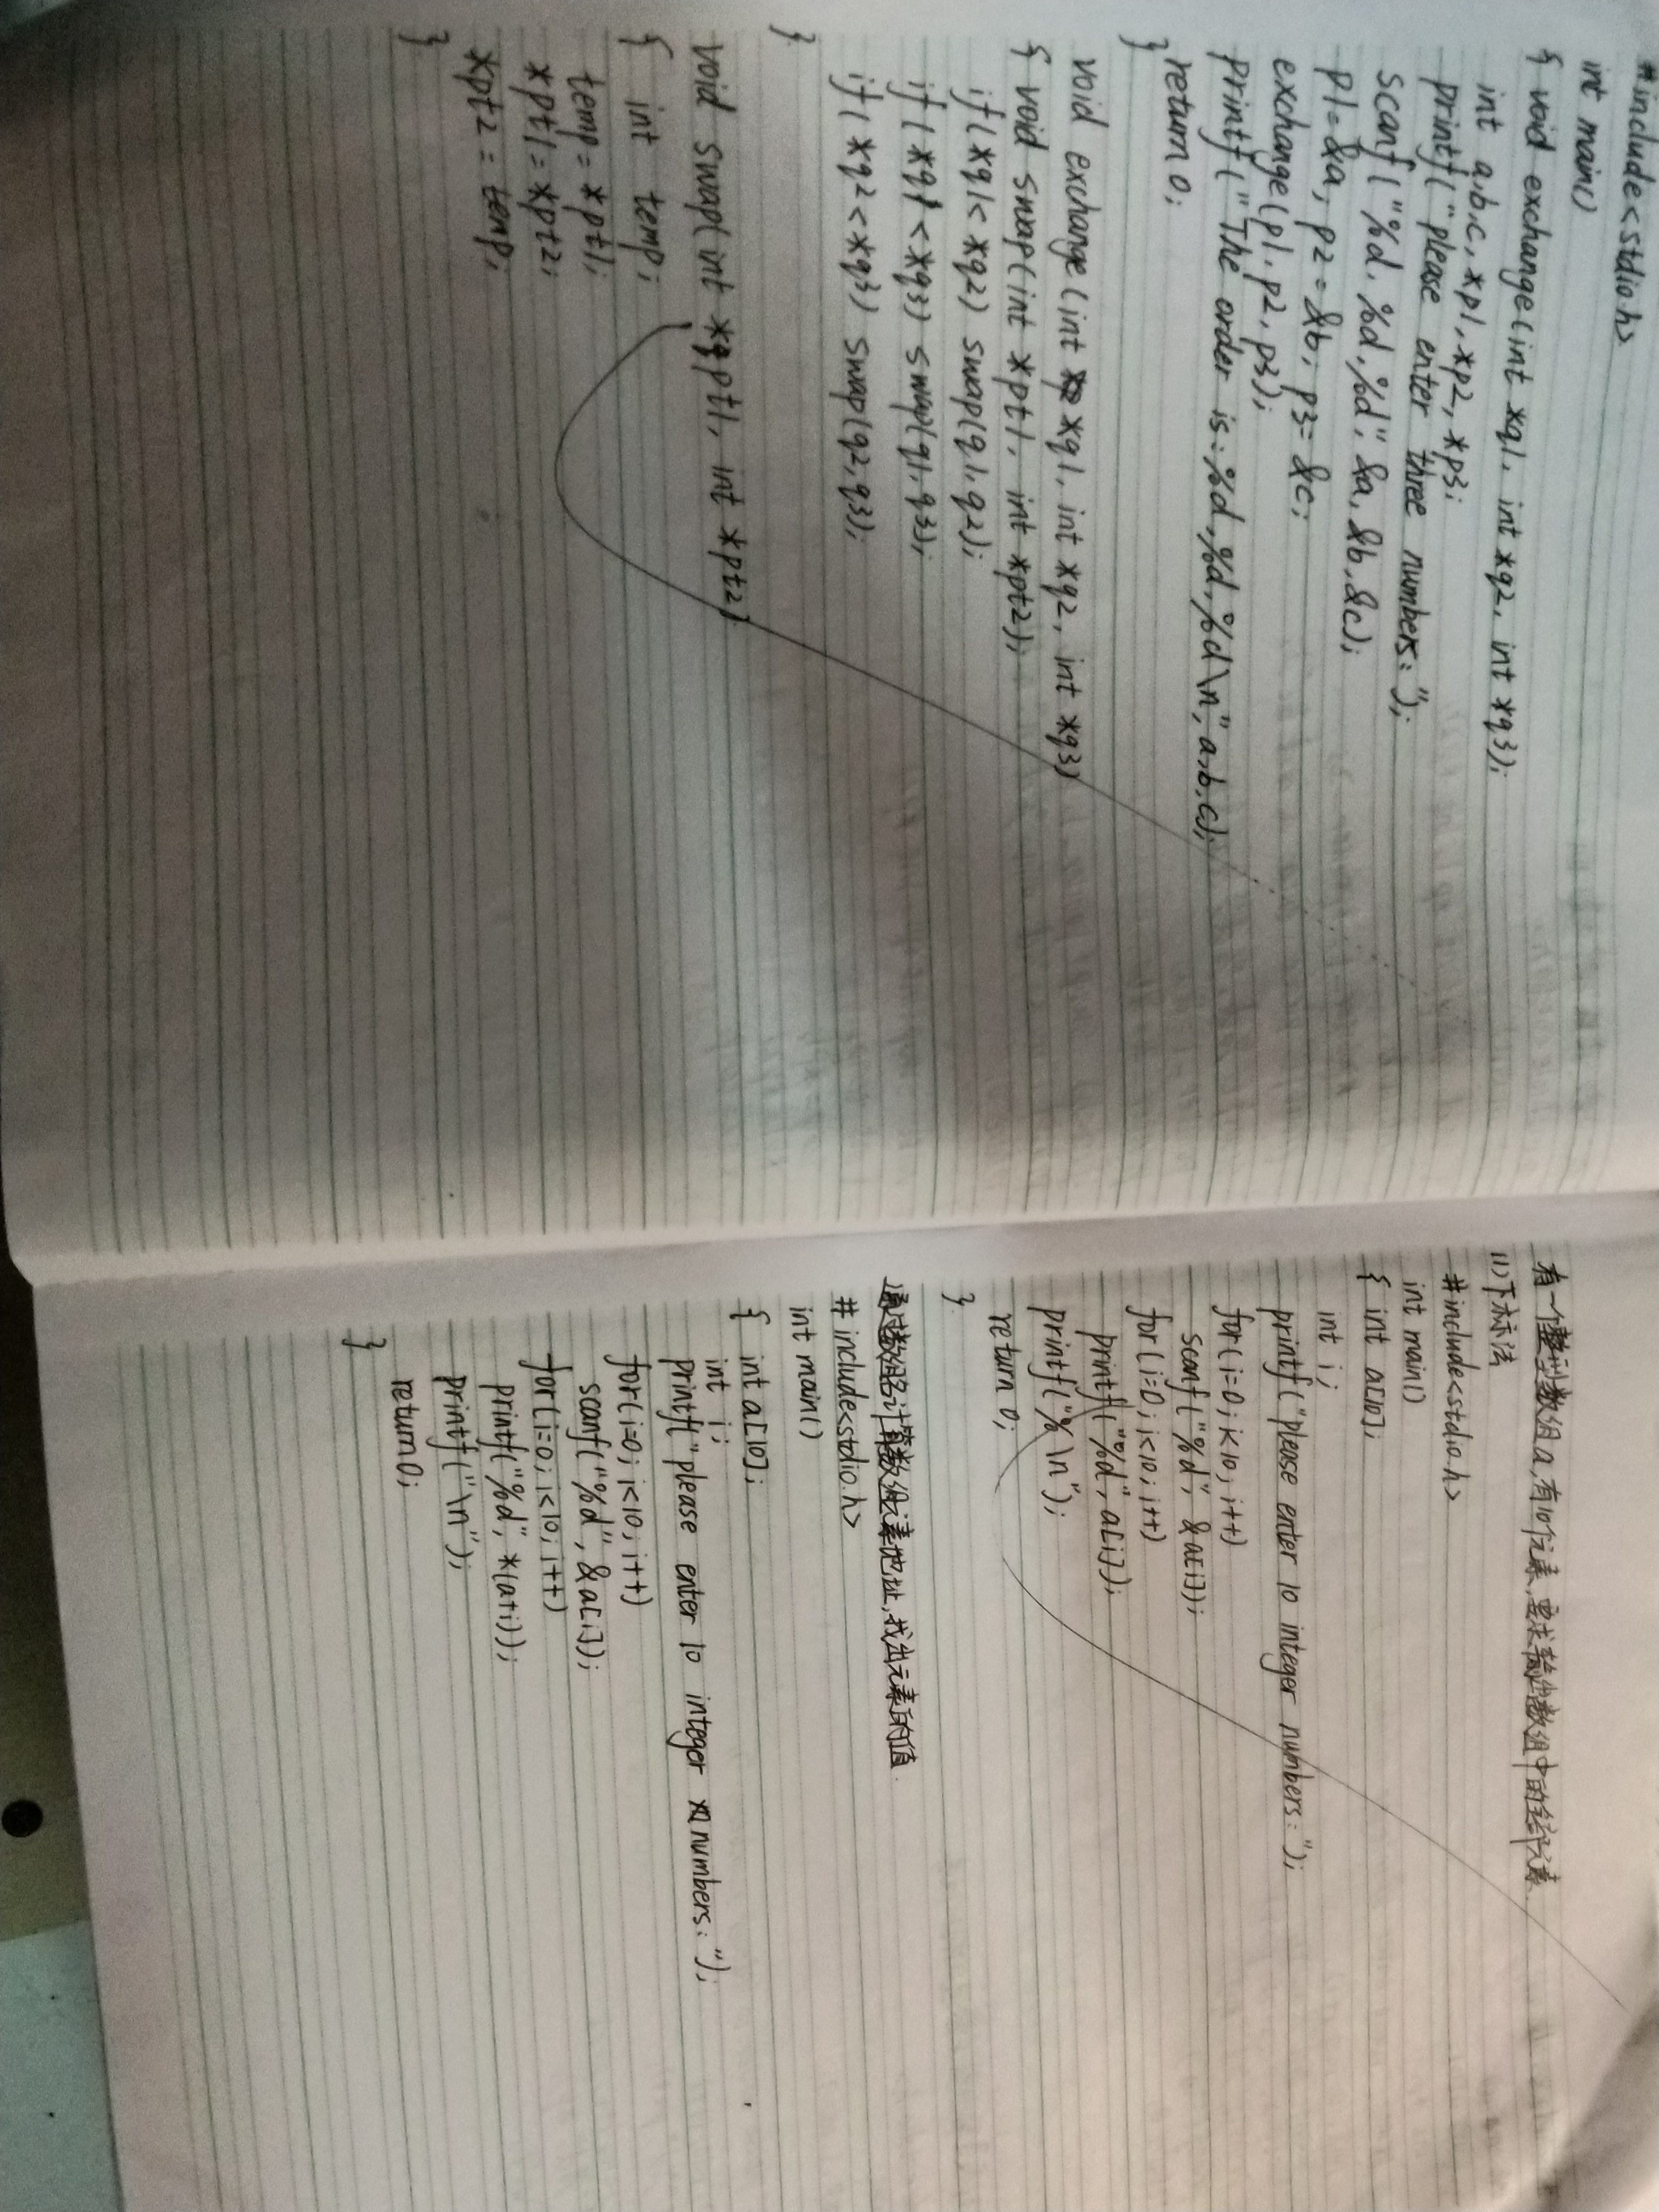 #include<stdio.h>
int main()
{ void exchange(int *q1, int *q2, int *q3);
int a,b,c,*p1,*p2,*p3;
printf("please enter three numbers:");
scanf("%d,%d,%d",&a,&b,&c);
p1=&a; p2=&b; p3=&c;
exchange(p1,p2,p3);
printf("The order is:%d,%d,%d\n",a,b,c);
return 0;
}
void exchange(int *q1, int *q2, int *q3)
{ void swap(int *pt1, int *pt2);
if(*q1<*q2) swap(q1,q2);
if(*q1<*q3) swap(q1,q3);
if(*q2<*q3) swap(q2,q3);
}
void swap(int *pt1, int *pt2)
{ int temp;
temp=*pt1;
*pt1=*pt2;
*pt2=temp;
}
有一个整型数组a,有10个元素,要求输出数组中的全部元素
(1)下标法
#include<stdio.h>
int main()
{ int a[10];
int i;
printf("please enter 10 integer numbers:");
for(i=0;i<10;i++)
scanf("%d",&a[i]);
for(i=0;i<10;i++)
printf("%d",a[i]);
printf("%\n");
return 0;
}
通过数组名计算数组元素地址,找出元素的值.
#include<stdio.h>
int main()
{ int a[10];
int i;
printf("please enter 10 integer numbers:");
for(i=0;i<10;i++)
scanf("%d",&a[i]);
for(i=0;i<10;i++)
printf("%d",*(a+i));
printf("\n");
return 0;
}